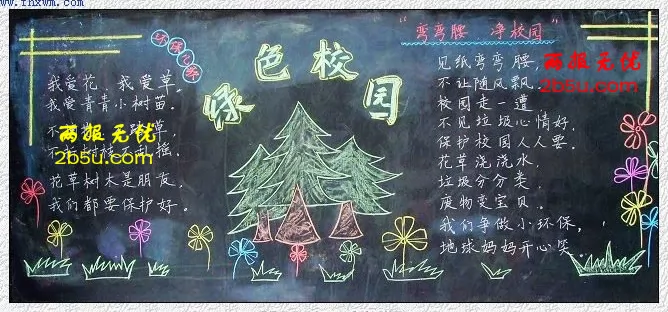 www.fnxwm.com
绿色校园
环保之家
我爱花、我爱草,
我爱青青小树苗。
花草树木是朋友,
我们都要保护好。
两报无忧
2b5u.com
"弯弯腰 净校园"
见纸弯弯腰,
不让随风飘。
校园走一遭,
不见垃圾心情好。
保护校园人人要。
花草浇浇水,
垃圾分分类,
废物变宝贝。
我们争做小环保,
地球妈妈开心笑。
两报无忧
2b5u.com